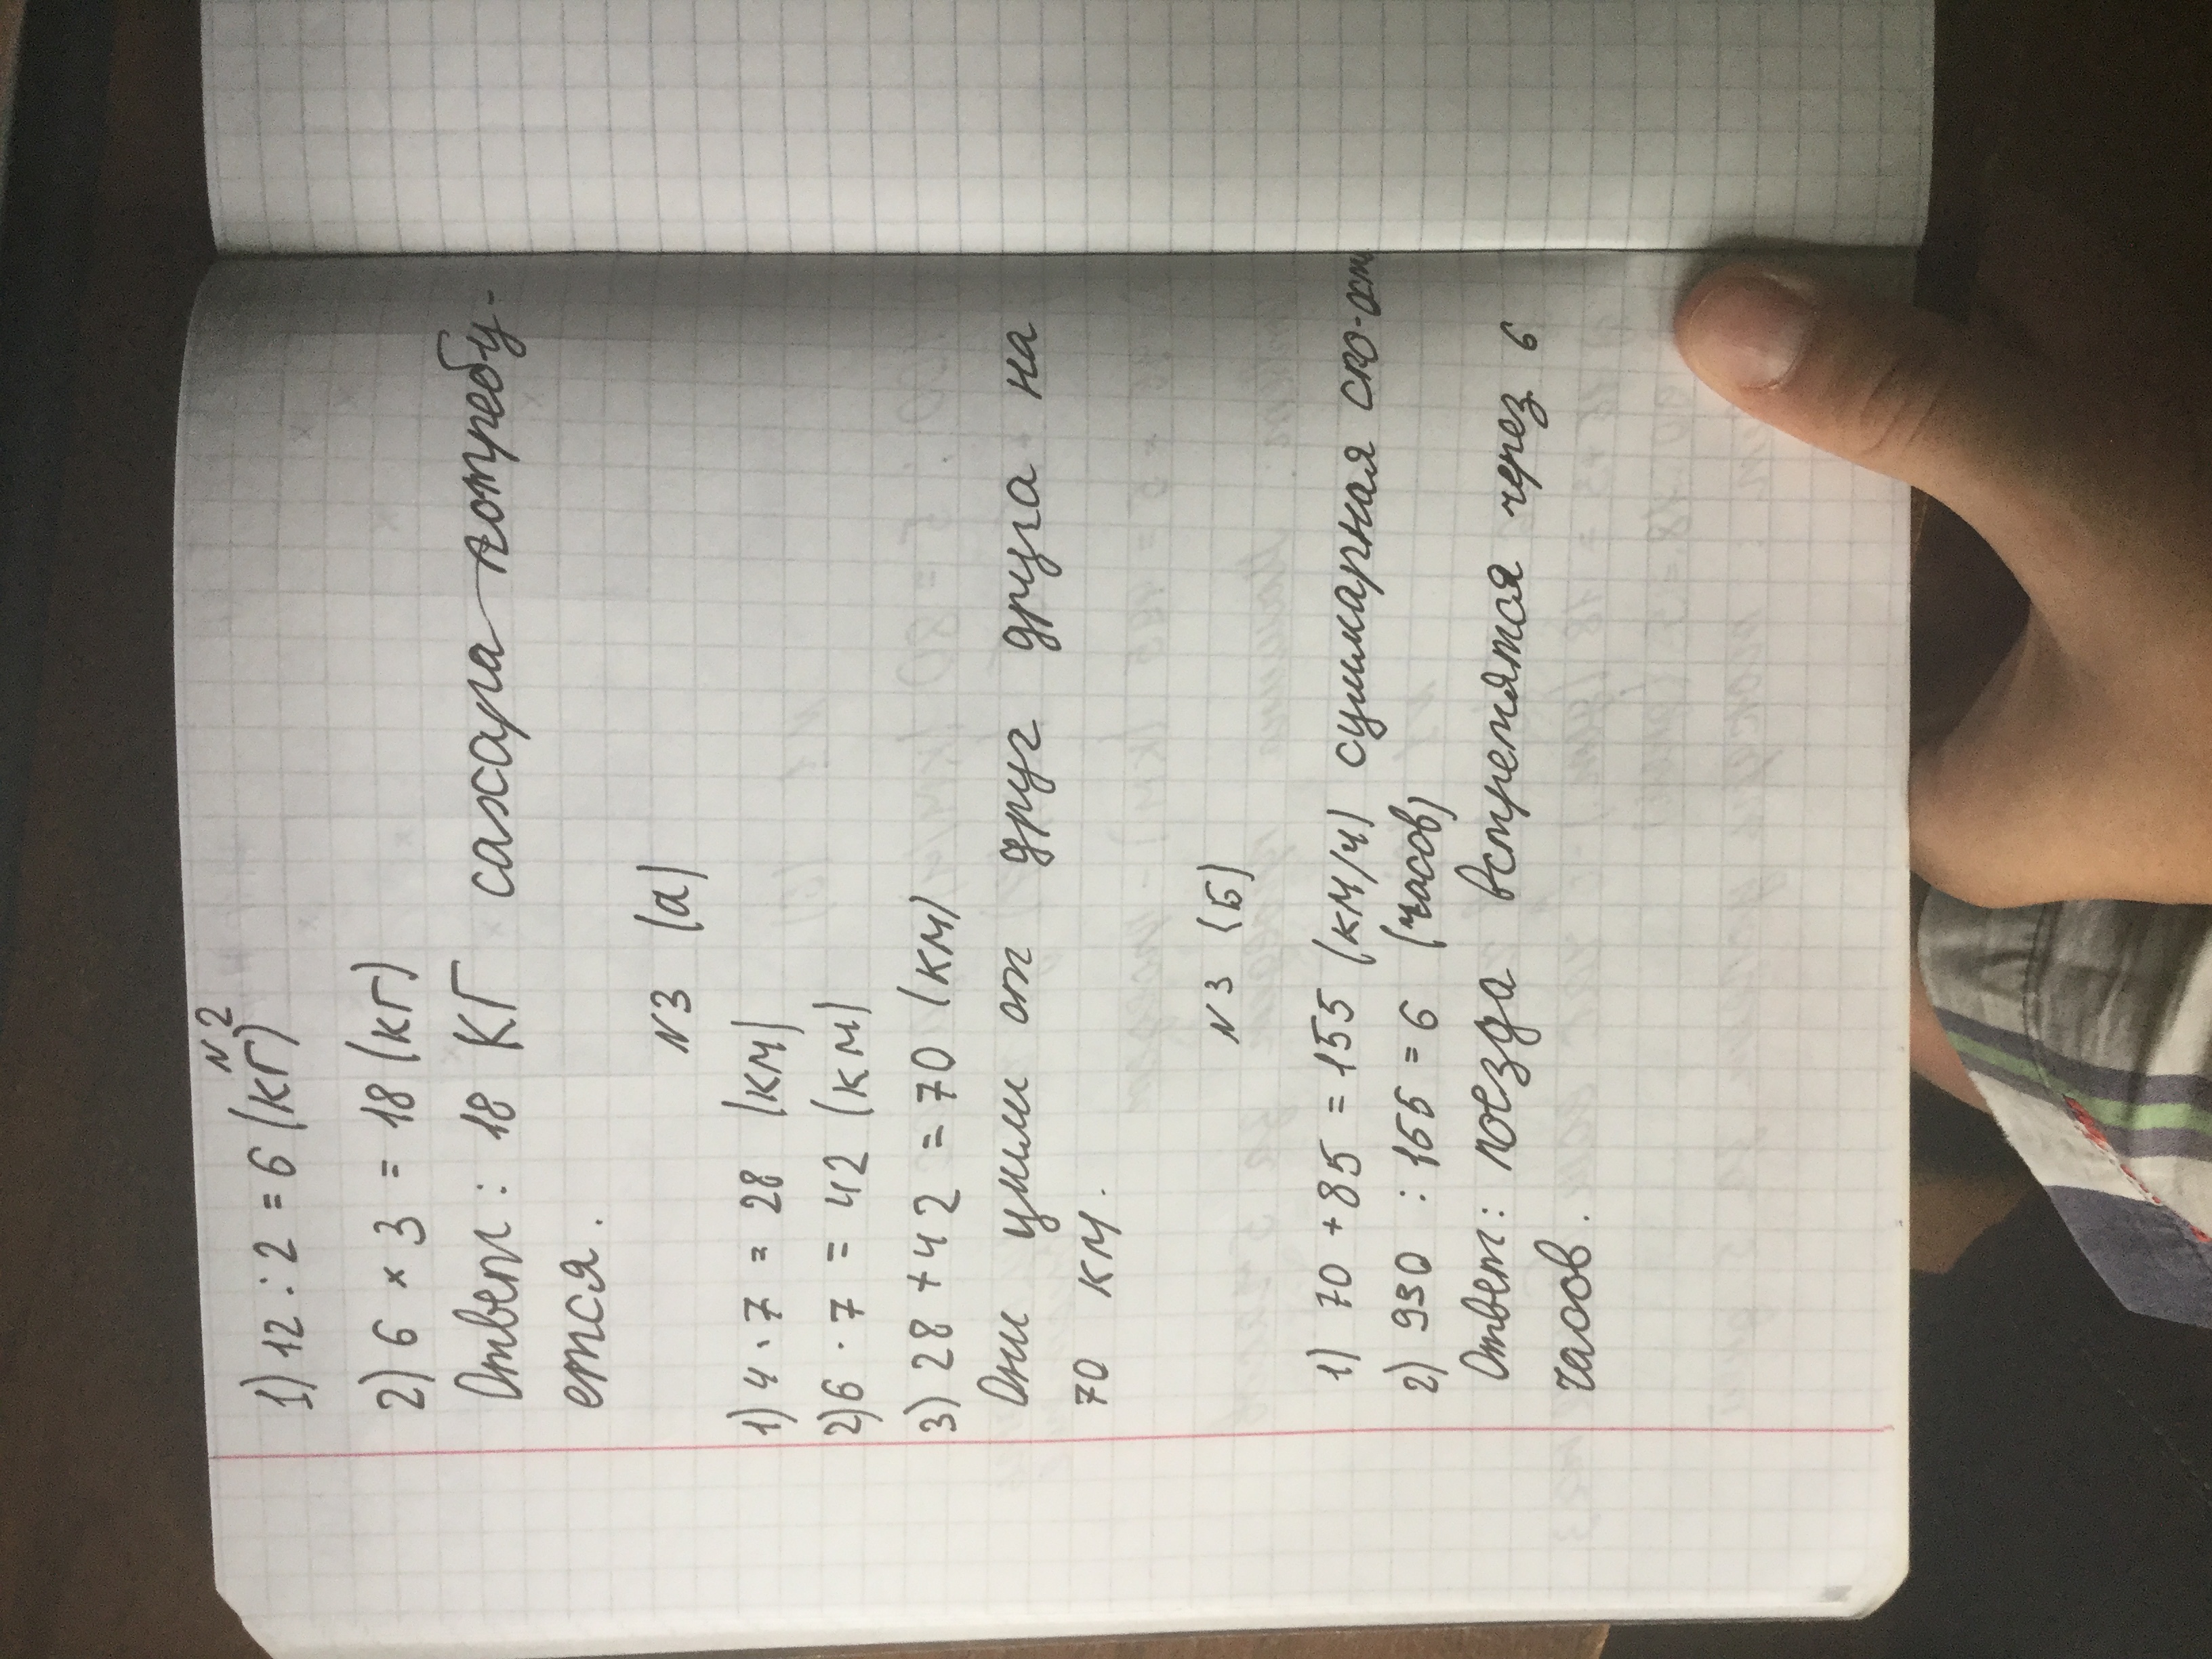 N 2
1) 12 : 2 = 6 (кг)
2) 6 × 3 = 18 (кг)
Ответ: 18 кг сахара потребу-
ется.
N3 (а)
1) 4 · 7 = 28 (км)
2) 6 · 7 = 42 (км)
3) 28 + 42 = 70 (км)
Они ушли от друг друга на
70 км.
N 3 (Б)
1) 70 + 85 = 155 (км/ч) суммарная ско-ость
2) 930 : 155 = 6 (часов)
Ответ: поезда встретятся через 6
часов.